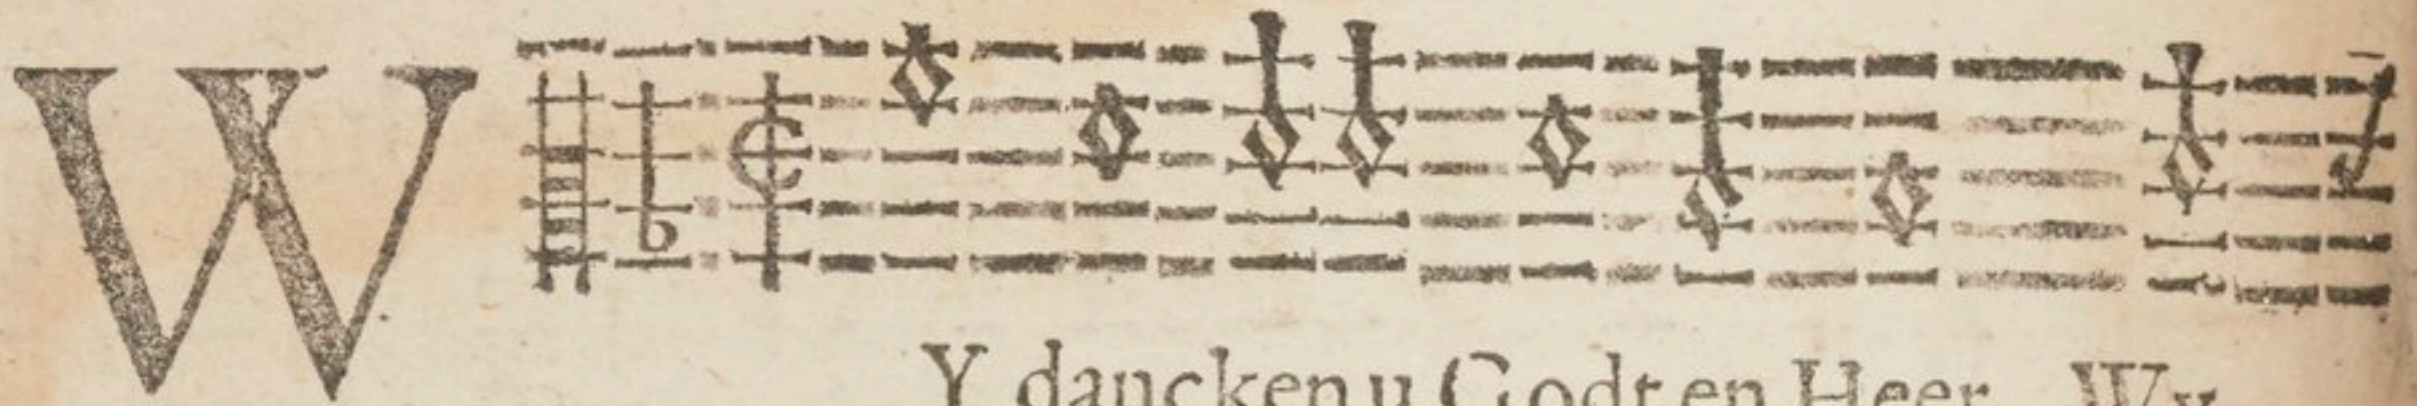 WY dancken u Godt en Heer Wy